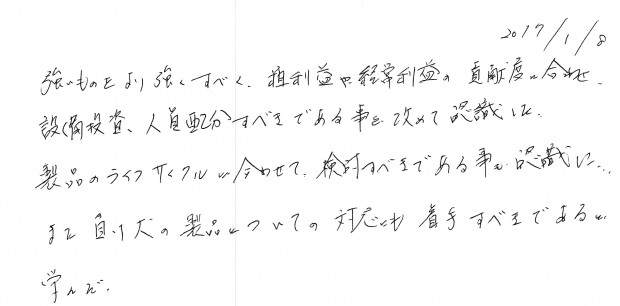 2017/1/8
強いものをより強くすべく、粗利益や経常利益の貢献度に合わせ、
設備投資、人員配分すべきである事を改めて認識した。
製品のライフサイクルに合わせて、検討すべきである事も認識した。
また負け犬の製品についての対応にも着手すべきであると
学んだ。